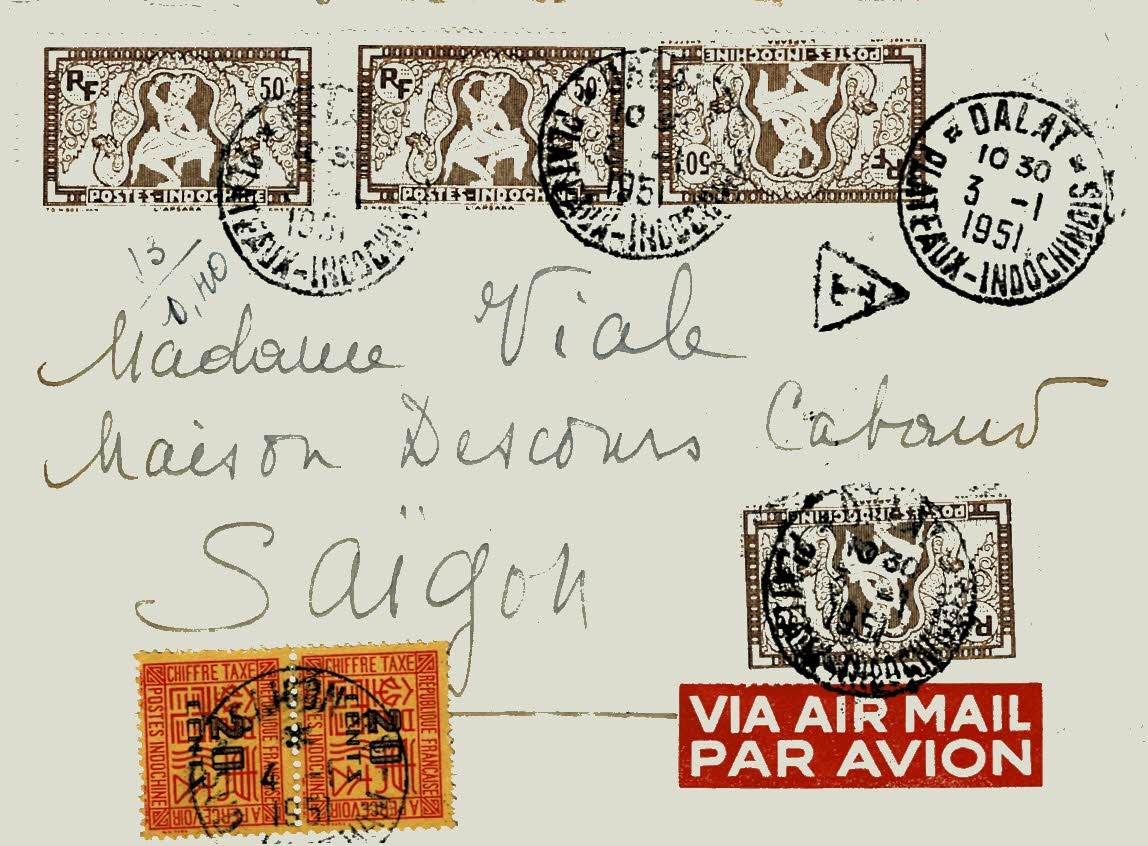 RF 50 POSTES-INDOCHINE
RF 50 POSTES-INDOCHINE
RF 50 POSTES-INDOCHINE
DALAT
10 30
3 -1
1951
PLATEAUX-INDOCHINOIS
T
13/0,40
Madame Viale
Maison Descours Cabaud
Saïgon
POSTES-INDOCHINE
RF
10 30
1951
CHIFFRE TAXE
RÉPUBLIQUE FRANÇAISE
POSTES INDOCHINE
A PERCEVOIR
20 CENTS
CHIFFRE TAXE
RÉPUBLIQUE FRANÇAISE
A PERCEVOIR
20 CENTS
4
1951
VIA AIR MAIL
PAR AVION